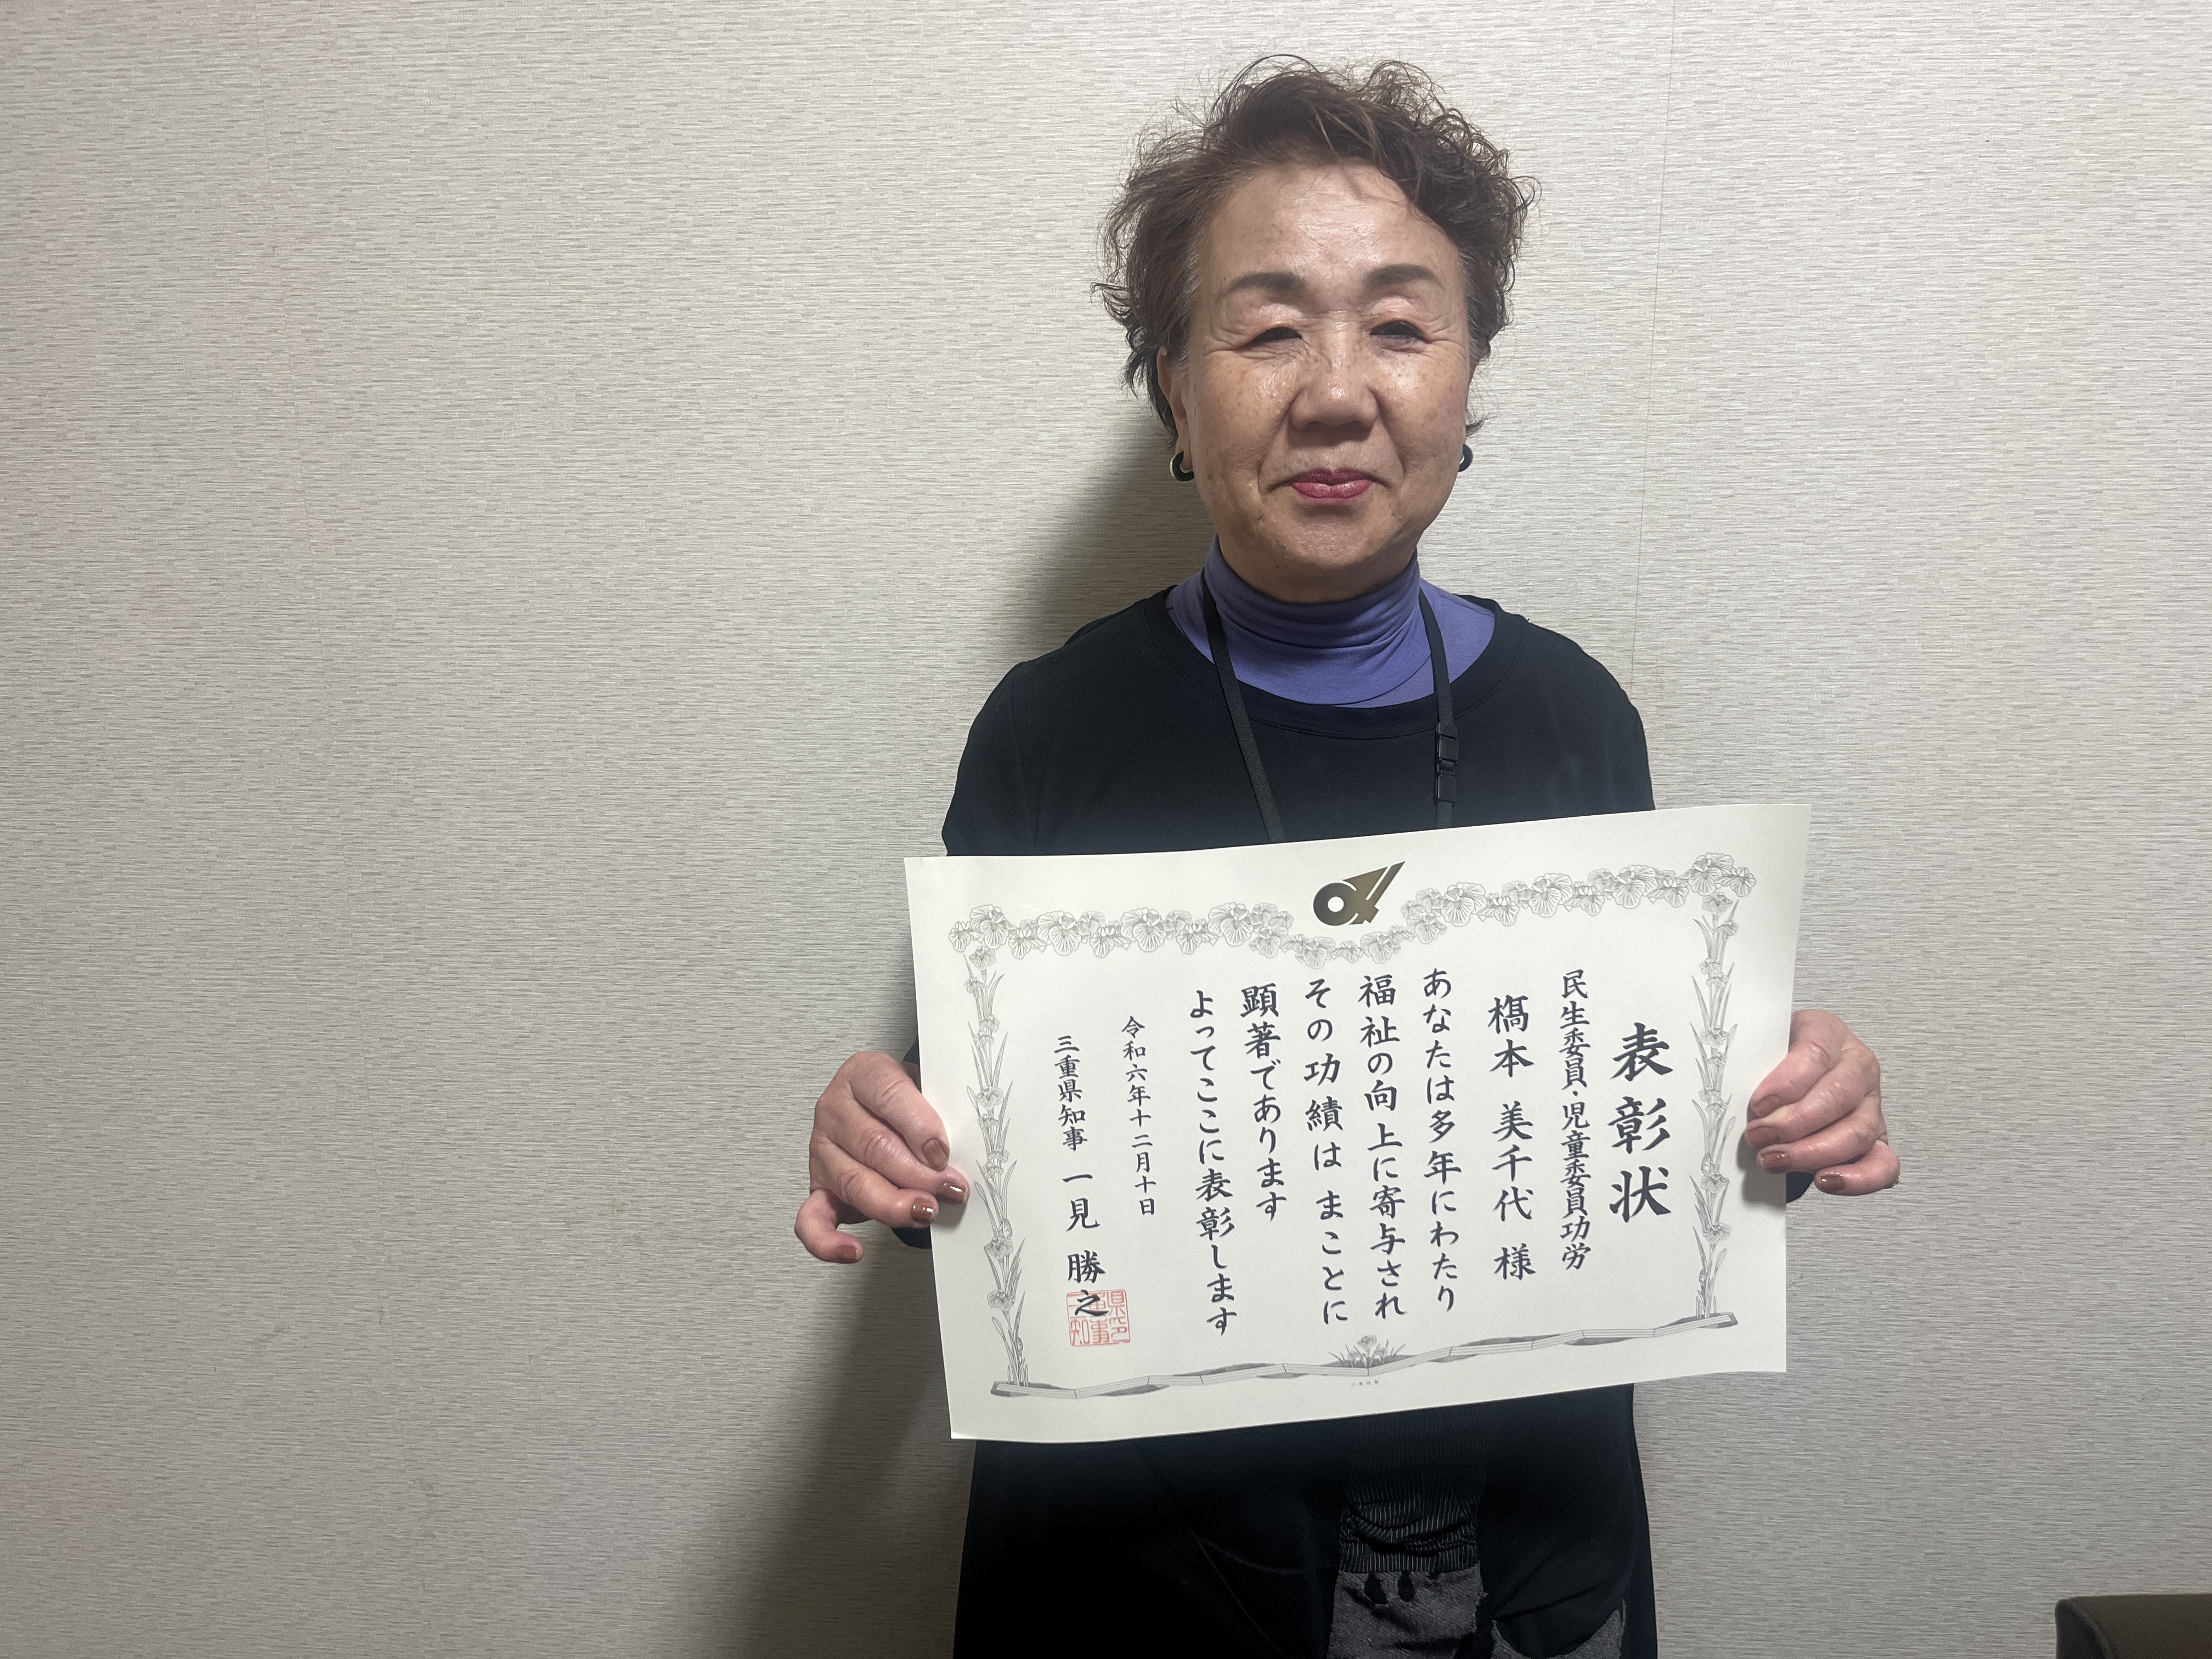 表彰状
民生委員、児童委員功労
槗本 美千代 様
あなたは多年にわたり
福祉の向上に寄与され
その功績は まことに
顕著であります
よってここに表彰します
令和六年十二月十日
三重県知事 一見 勝之